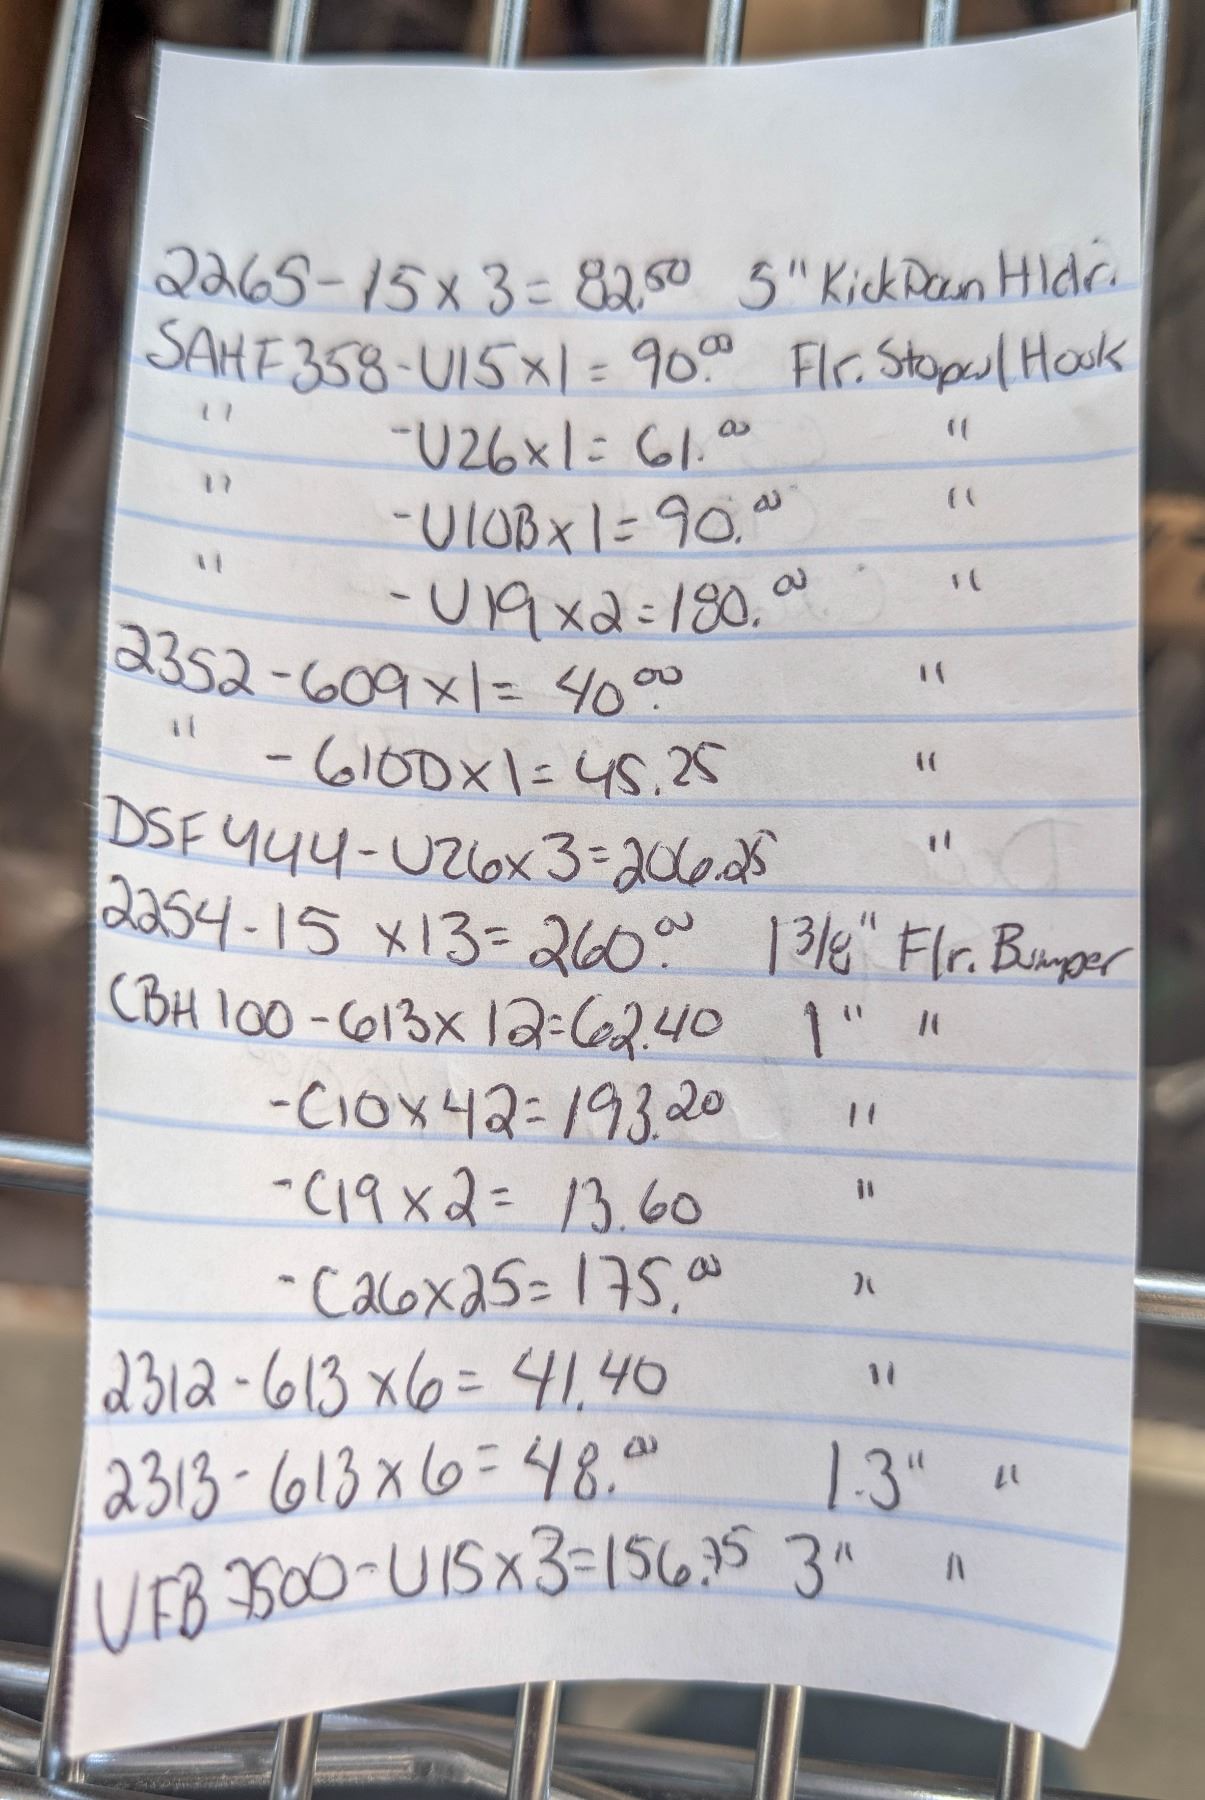 2265-15 x 3 = 82.50 5" Kick Down Hldr.
SAHF358-U15 x 1 = 90.00 Flr. Stop w/ Hook
" -U26 x 1 = 61.00 "
" -U10B x 1 = 90.00 "
" -U19 x 2 = 180.00 "
2352-609 x 1 = 40.00 "
" -610D x 1 = 45.25 "
DSF444-U26 x 3 = 206.25 "
2254-15 x 13 = 260.00 1 3/8" Flr. Bumper
CBH100-613 x 12 = 62.40 1" "
-C10 x 42 = 193.20 "
-C19 x 2 = 13.60 "
-C26 x 25 = 175.00 "
2312-613 x 6 = 41.40 "
2313-613 x 6 = 48.00 1.3" "
UFB7500-U15 x 3 = 156.75 3" "